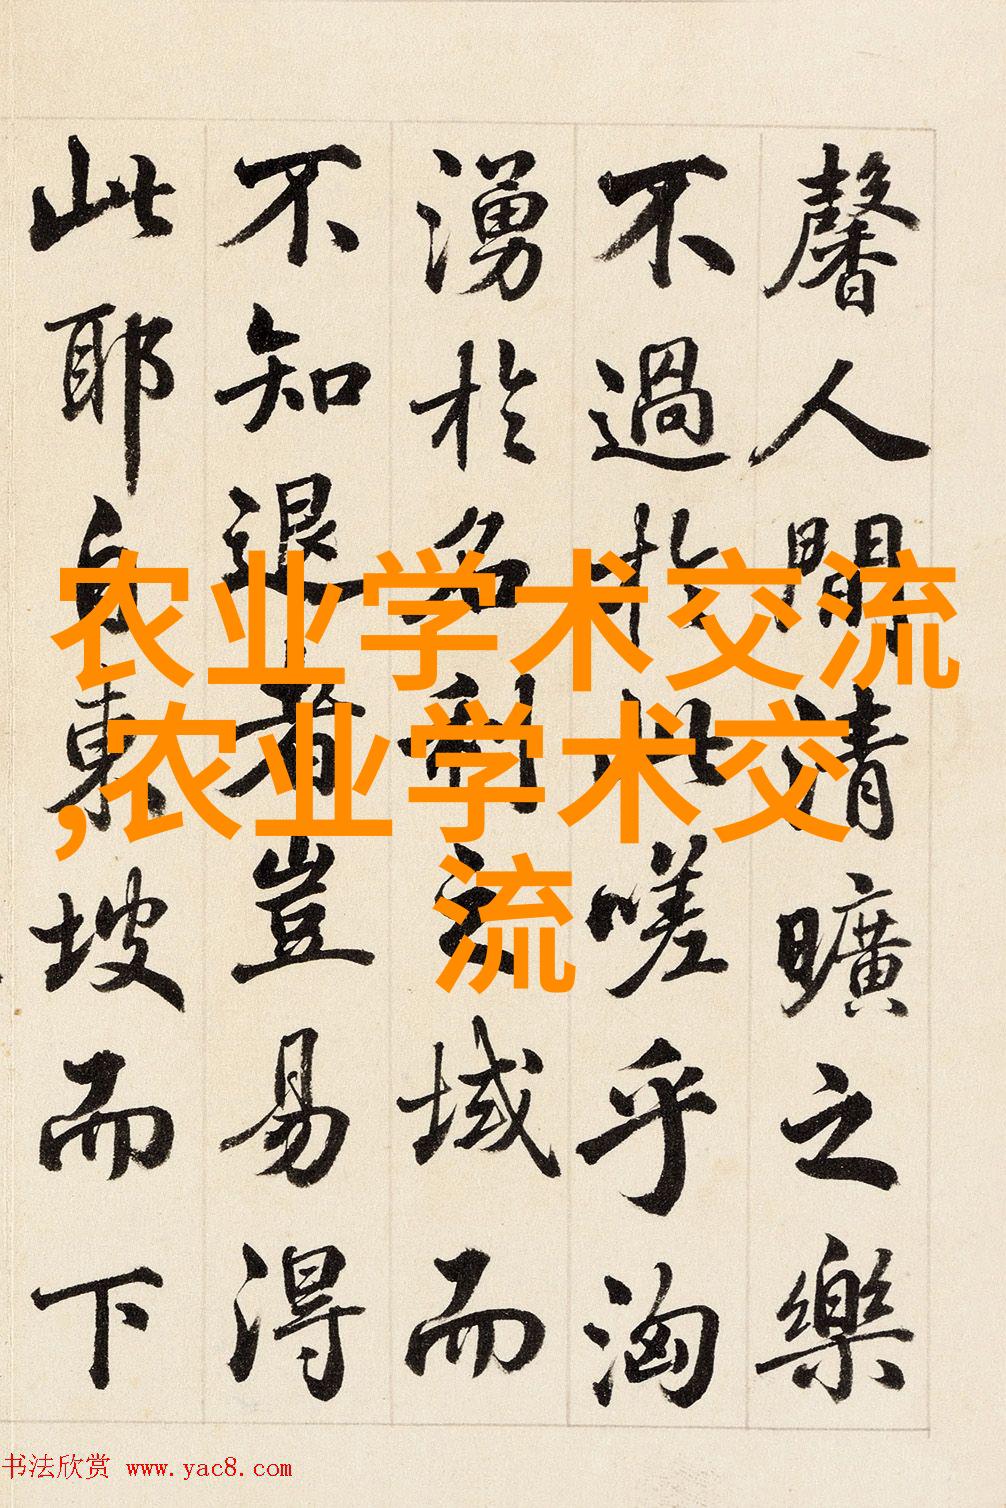 馨人間清曠之樂
不過於此嗟乎洶
湧於名利之域而
不知退者豈易得
此耶自東坡而下
农业学术交流
,农业学术交
流
书法欣赏 www.yac8.com